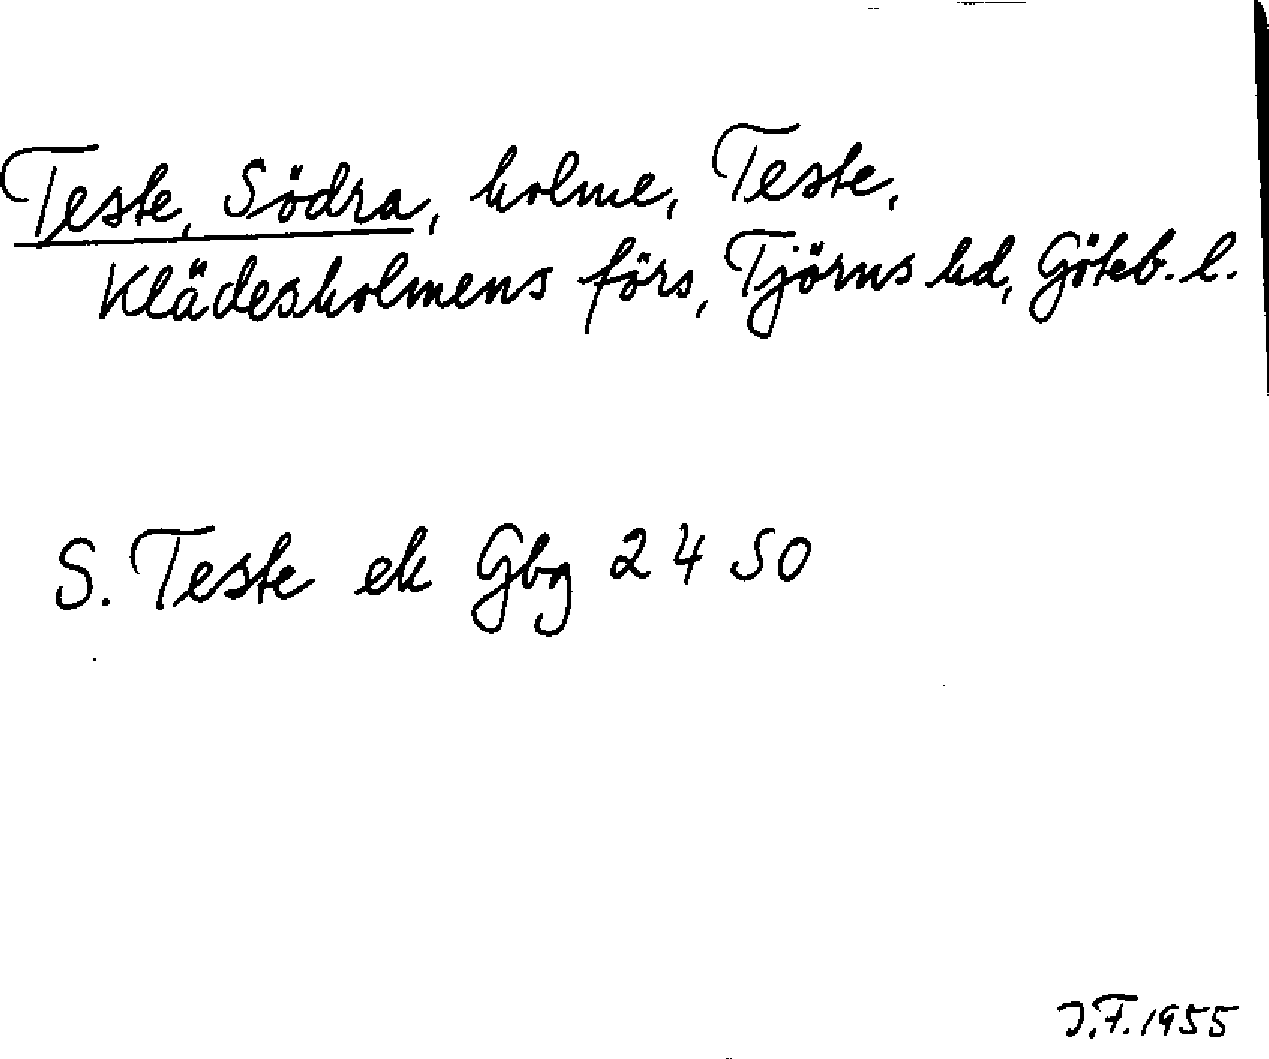 Teste, Södra, holme, Teste,
Klädesholmens förs, Tjörns hd, Göteb. l.
S. Teste ek Gbg 24 SO
J.F. 1955